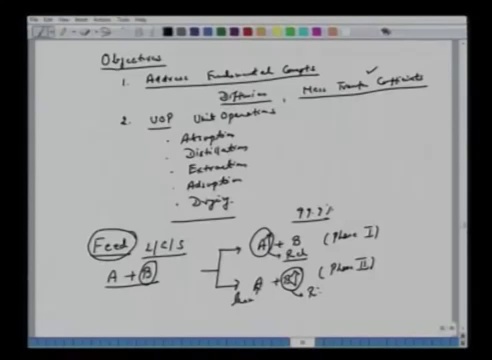 Objectives
1. Address Fundamental Concepts
Diffusion, Mass Transfer Coefficients
2. UOP Unit Operations
. Absorption
. Distillation
. Extraction
. Adsorption
. Drying
99.9%
Feed L/G/S
A + B
A↑ + B (Phase I)
Rich
A + B↑ (Phase II)